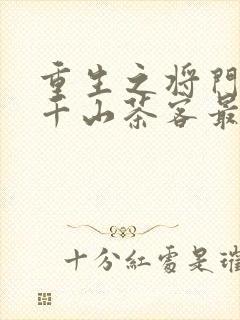 重生之将門
千山茶客最
十分紅處是璀